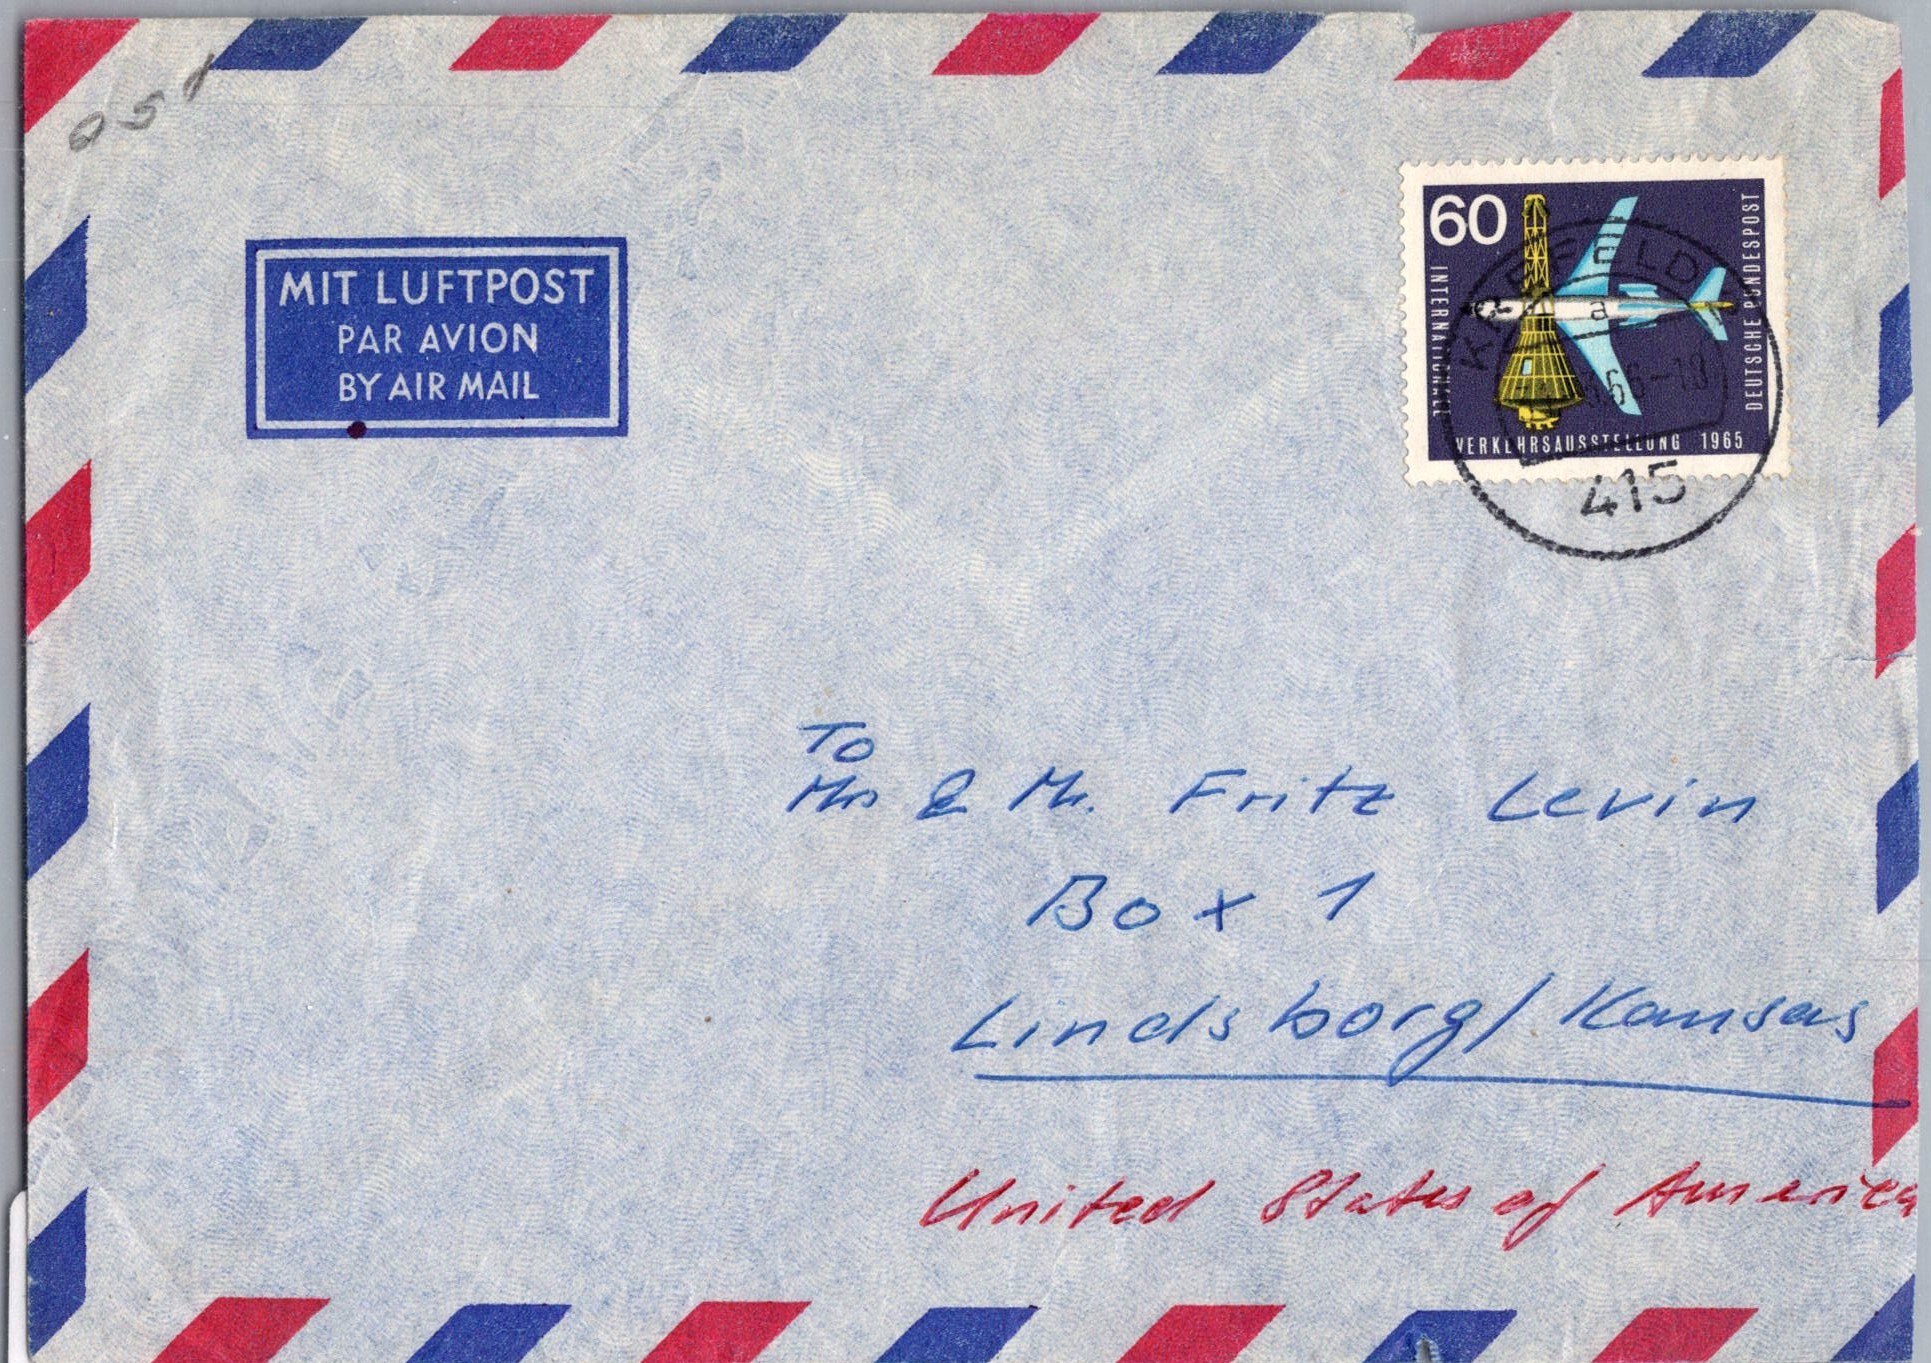 050
MIT LUFTPOST
PAR AVION
BY AIR MAIL
60
INTERNATIONALE
VERKEHRSAUSSTELLUNG 1965
DEUTSCHE BUNDESPOST
KREFELD
a
415
To
Mrs & Mr. Fritz Levin
Box 1
Lindsborg / Kansas
United States of America